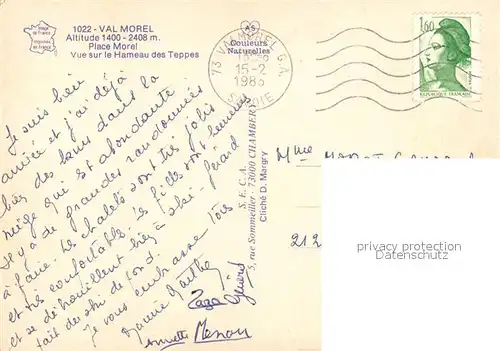 1022 - VAL MOREL
Altitude 1400 - 2408 m.
Place Morel
Vue sur le Hameau des Teppes
Couleurs
Naturelles
73 VALMOREL G.A.
15-2
1986
SAVOIE
1,60
REPUBLIQUE FRANÇAISE
Je suis bien
arrivée et j'ai déjà la
bien des bains dans la
neige qui est abondante
Il y a de grandes randonnées
à faire. Les chalets sont très jolis
et très confortables les filles sont heureuses
et se débrouillent bien à ski. Gérard
fait du ski de fond.
Je vous embrasse tous
Jeanne Marthe
Zaza Gérard
Annette Menou
S.E.C.A.
5, rue Sommeiller - 73000 CHAMBERY
Cliché D. Margry
Mme
212
privacy protection
Datenschutz